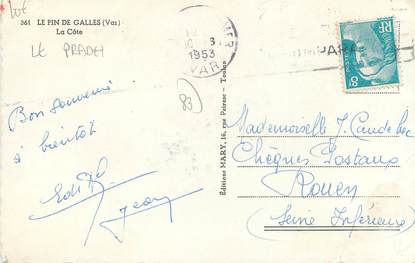 361 LE PIN DE GALLES (Var)
La Côte
LE PRADET
1953
VAR
RF
8F
83
Bon souvenir
à bientôt
Edith
Jean
Editions MARY, 16, rue Peiresc - Toulon
Mademoiselle J. Caudebec
Chèques Postaux
Rouen
(Seine Inférieure)